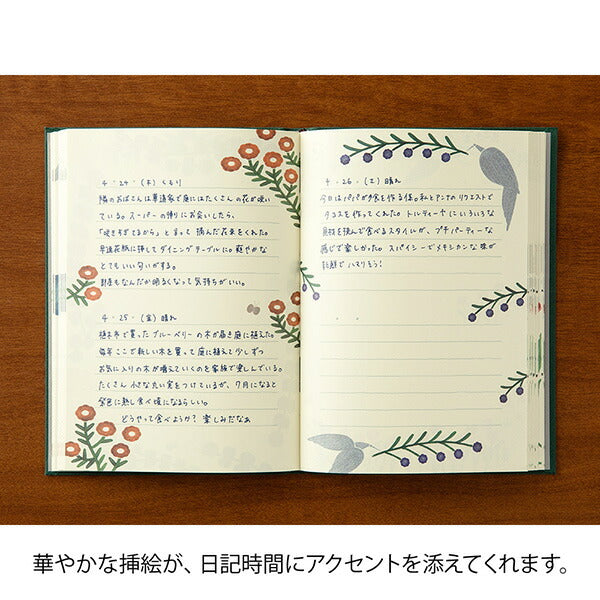 4・24・(木) くもり
隣のおばさんは華道家で庭にはたくさんの花が咲い
ている。スーパーの帰りにお会いしたら、
「咲きすぎてるから」と言って 摘んだ花束をくれた。
早速花瓶に挿してダイニングテーブルに。 華やかな
とてもいい匂いがする。
部屋もなんだか明るくなって気持ちがいい。
4・25・(金) 晴れ
植木市で買ったブルーベリーの木が届き庭に植えた。
毎年ここで新しい木を買って庭に植えて少しずつ
お気に入りの木が増えていくのを家族で楽しんでいる。
たくさん小さな丸い実をつけているが、7月になると
紫色に熟し食べ頃になるらしい。
どうやって食べようか? 楽しみだなぁ
4・26・(土) 晴れ
今日はパパが夕食を作る係。私とアンナのリクエストで
タコスを作ってくれた。トルティーヤにいろいろな
具材を挟んで食べるスタイルが、プチパーティーな
感じで楽しかった。スパイシーでメキシカンな味が
新鮮でハマりそう!
華やかな挿絵が、日記時間にアクセントを添えてくれます。